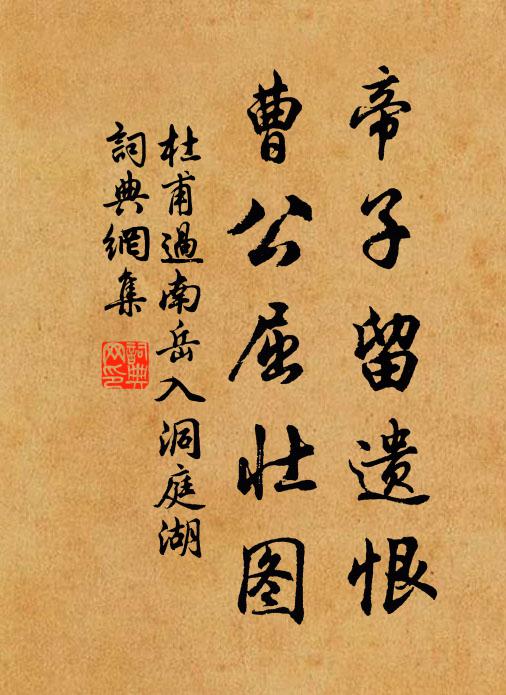 帝子留遗恨
曹公屈壮图
杜甫過南岳入洞庭湖
詞典網集
詞典
网印